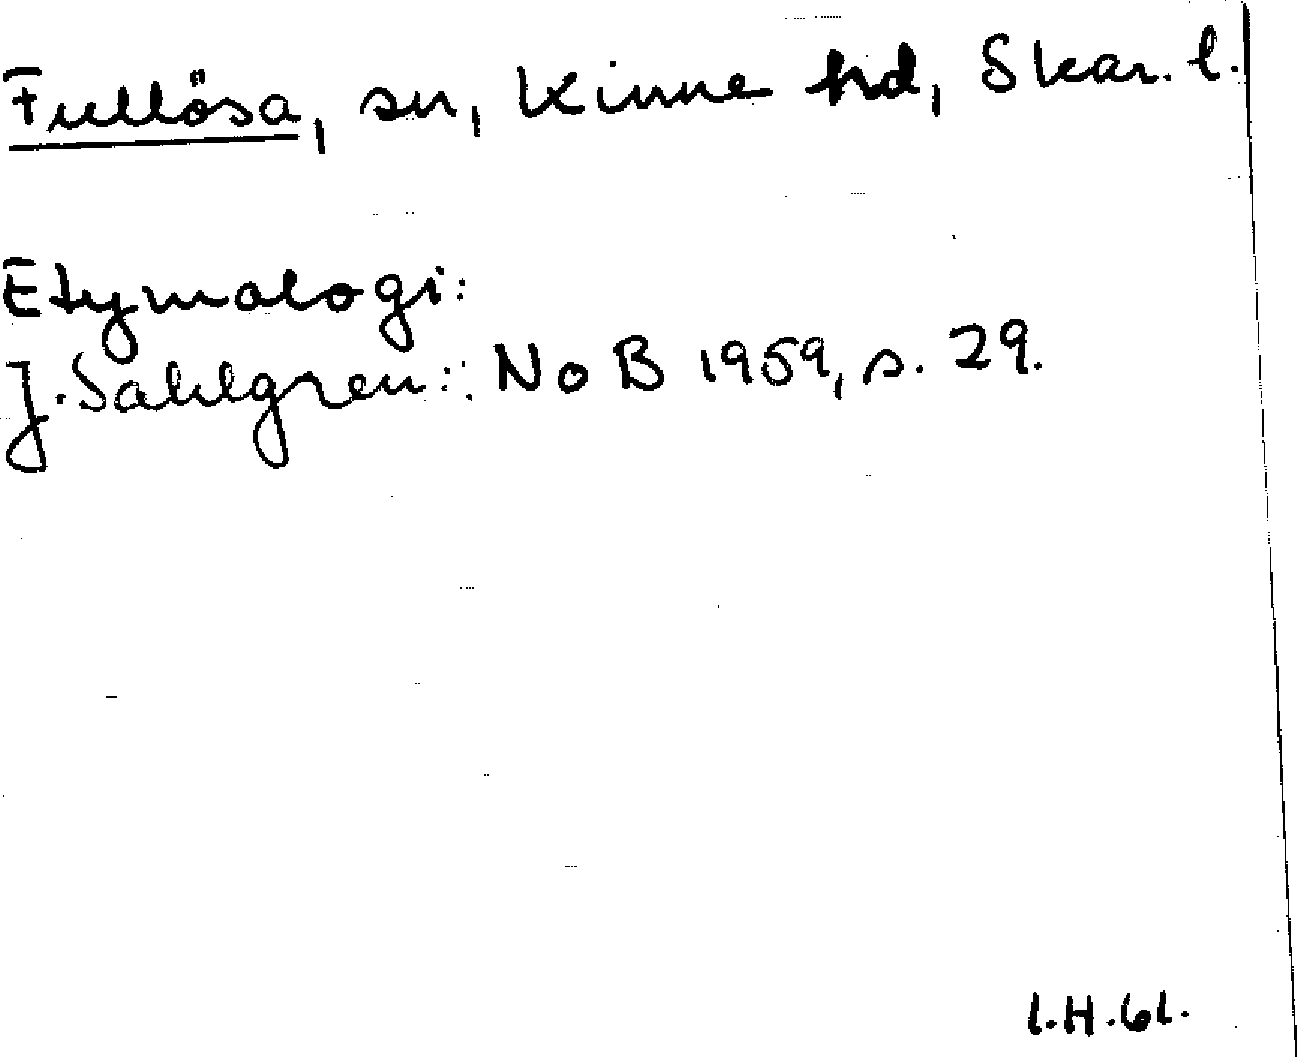 Fullösa, sn, Kinne hd, Skar. l.
Etymologi:
J. Sahlgren: NoB 1959, s. 29.
l.H.61.